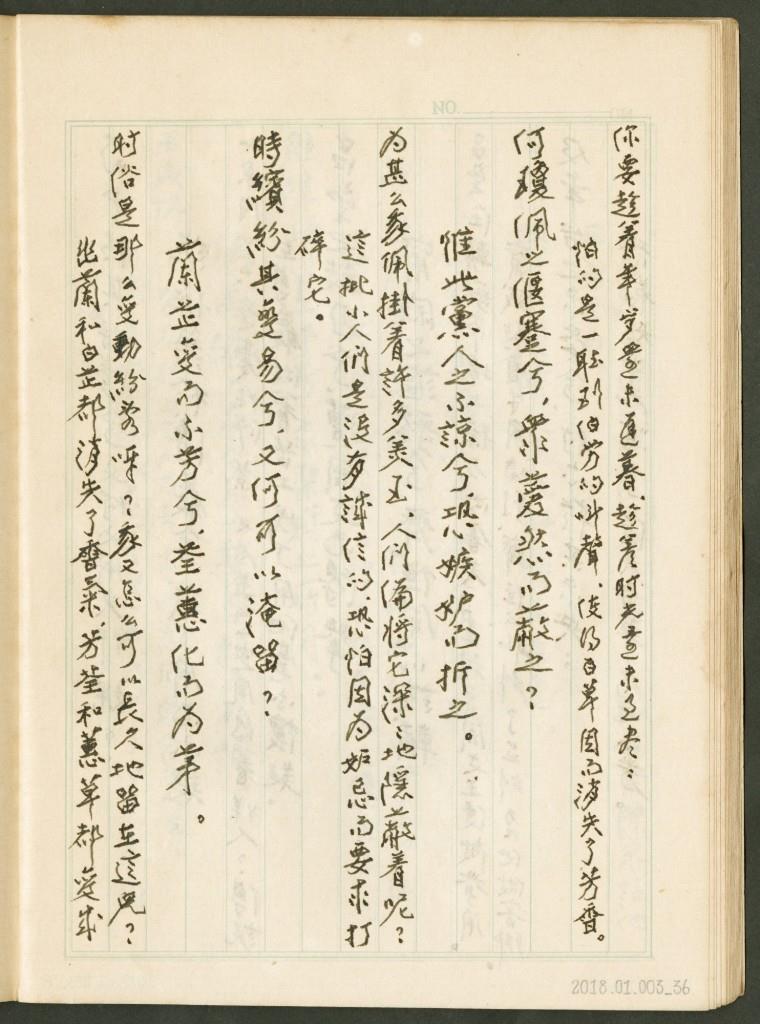 你要趁着年岁還未遲暮、趁着时光還未过尽：
怕的是一聽到伯劳的叫聲、使得百草因而消失了芳香。
何瓊佩之偃蹇兮，眾薆然而蔽之？
惟此黨人之不諒兮，恐嫉妒而折之。
为甚么我佩掛着許多美玉、人們偏将它深深地隱蔽着呢？
這批小人們是没有誠信的、恐怕因为妬忌而要求打
碎它。
時繽紛其變易兮、又何可以淹留？
蘭芷变而不芳兮、荃蕙化而为茅。
时俗是那么变動紛紊呀？我又怎么可以長久地留在這兒？
幽蘭和白芷都消失了香氣、芳荃和蕙草都变成
NO.
2018.01.003_36